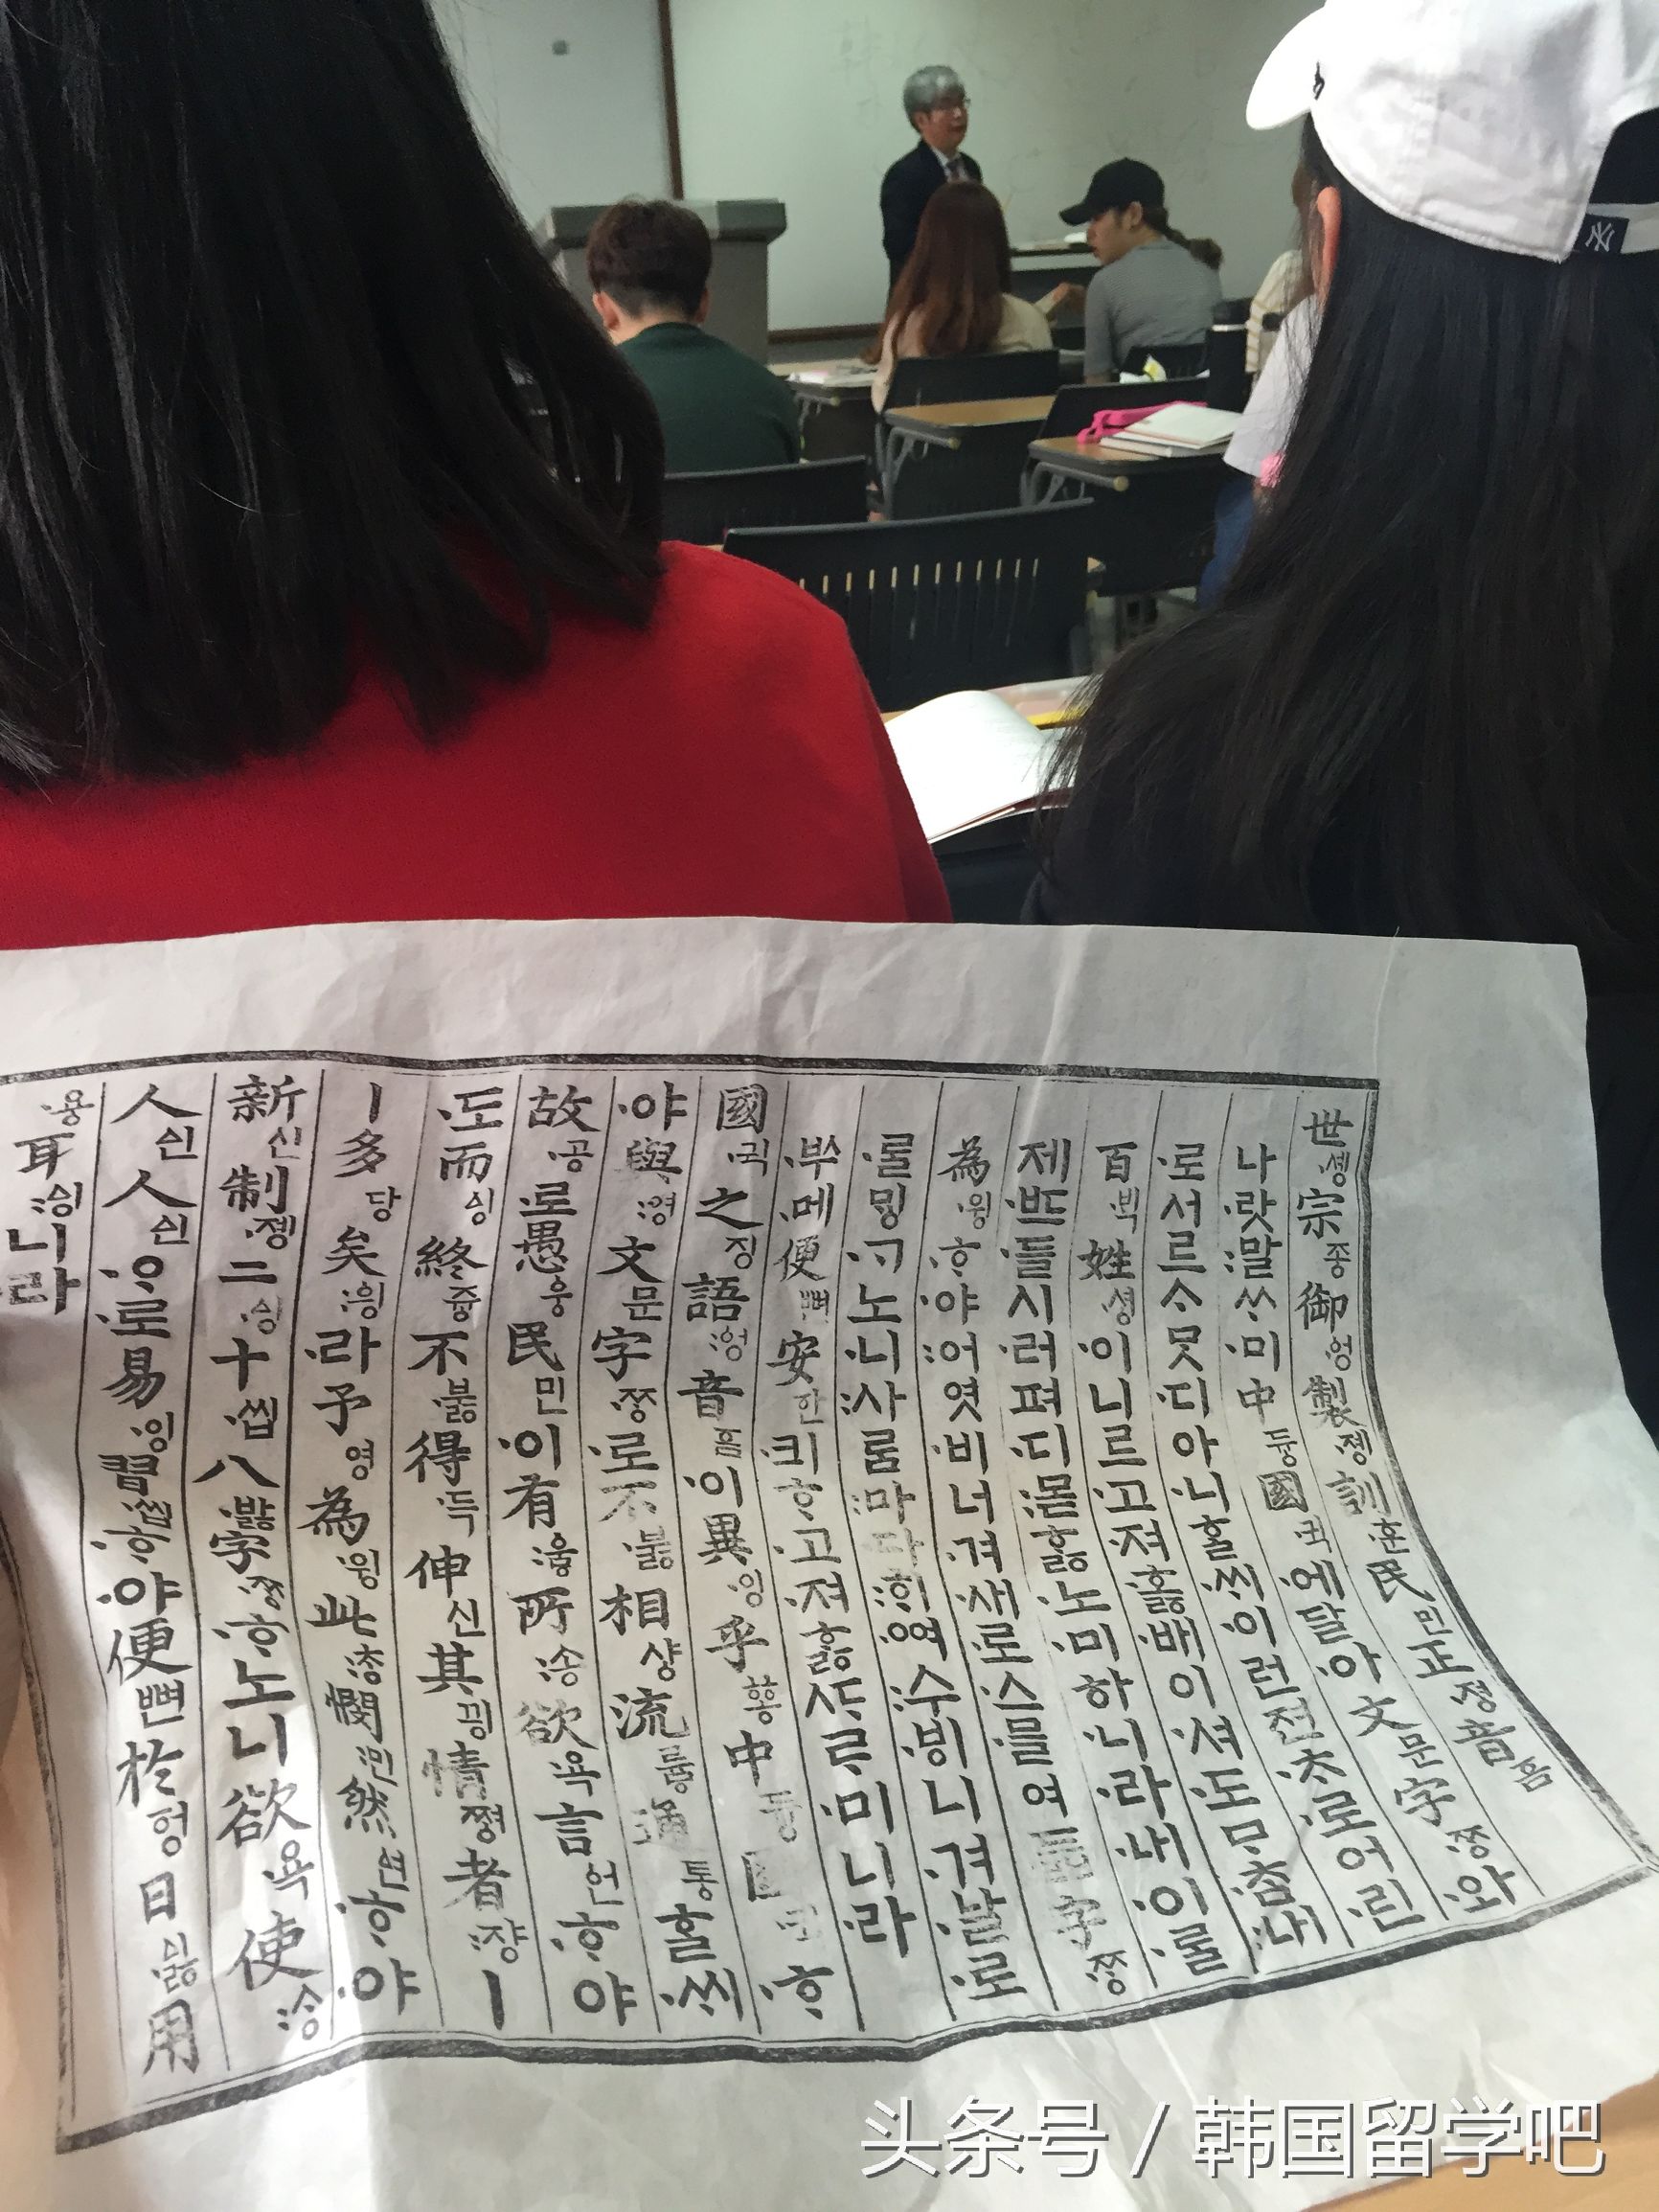 世솅宗종御엉製졩訓훈民민正졍音ᅙᅳᆷ
나랏말ᄊᆞ미中듀ᇰ國귁에달아文문字ᄍᆞᆼ와
로서르ᄉᆞᄆᆞᆺ디아니ᄒᆞᆯᄊᆡ이런젼ᄎᆞ로어린
百ᄇᆡᆨ姓셩이니르고져호ᇙ배이셔도ᄆᆞᄎᆞᆷ내
제ᄠᅳ들시러펴디몯ᄒᆞᇙ노미하니라내이ᄅᆞᆯ
為윙ᄒᆞ야어엿비너겨새로스믈여字ᄍᆞᆼ
ᄅᆞᆯᄆᆡᇰᄀᆞ노니사ᄅᆞᆷ마다ᄒᆡᅇᅧ수ᄫᅵ니겨날로
ᄡᅮ메便뼌安ᅙᅡᆫ킈ᄒᆞ고져ᄒᆞᇙᄯᆞᄅᆞ미니라
國귁之징語엉音ᅙᅳᆷ이異잉乎ᅘᅩᆼ中듀ᇰᄒᆞ
야與영文문字ᄍᆞᆼ로不부ᇙ相샹流류ᇢ通통ᄒᆞᆯᄊᆡ
故공로愚웅民민이有우ᇢ所송欲욕言언ᄒᆞ야
도而ᅀᅵᆼ終쥬ᇰ不부ᇙ得득伸신其끵情쪄ᇰ者쟝ㅣ
ㅣ多당矣ᅌᅴᆼ라予영為윙此ᄎᆞᆼ憫민然ᅀᅧᆫᄒᆞ야
新신制졩二ᅀᅵᆼ十씹八바ᇙ字ᄍᆞᆼᄒᆞ노니欲욕使ᄉᆞᆼ
人ᅀᅵᆫ人ᅀᅵᆫᄋᆞ로易잉習씹ᄒᆞ야便뼌於ᅙᅥᆼ日ᅀᅵᇙ用
용耳ᅀᅵᆼ니라
头条号 / 韩国留学吧